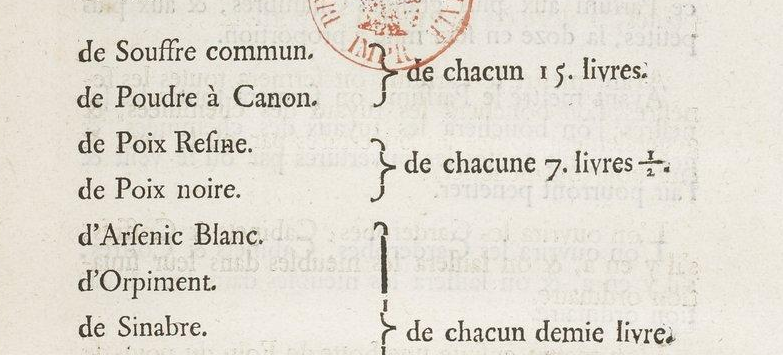 de Souffre commun.
de Poudre à Canon.
de chacun 15. livres.
de Poix Reſine.
de Poix noire.
de chacune 7. livres ½.
d'Arſenic Blanc.
d'Orpiment.
de Sinabre.
de chacun demie livre.